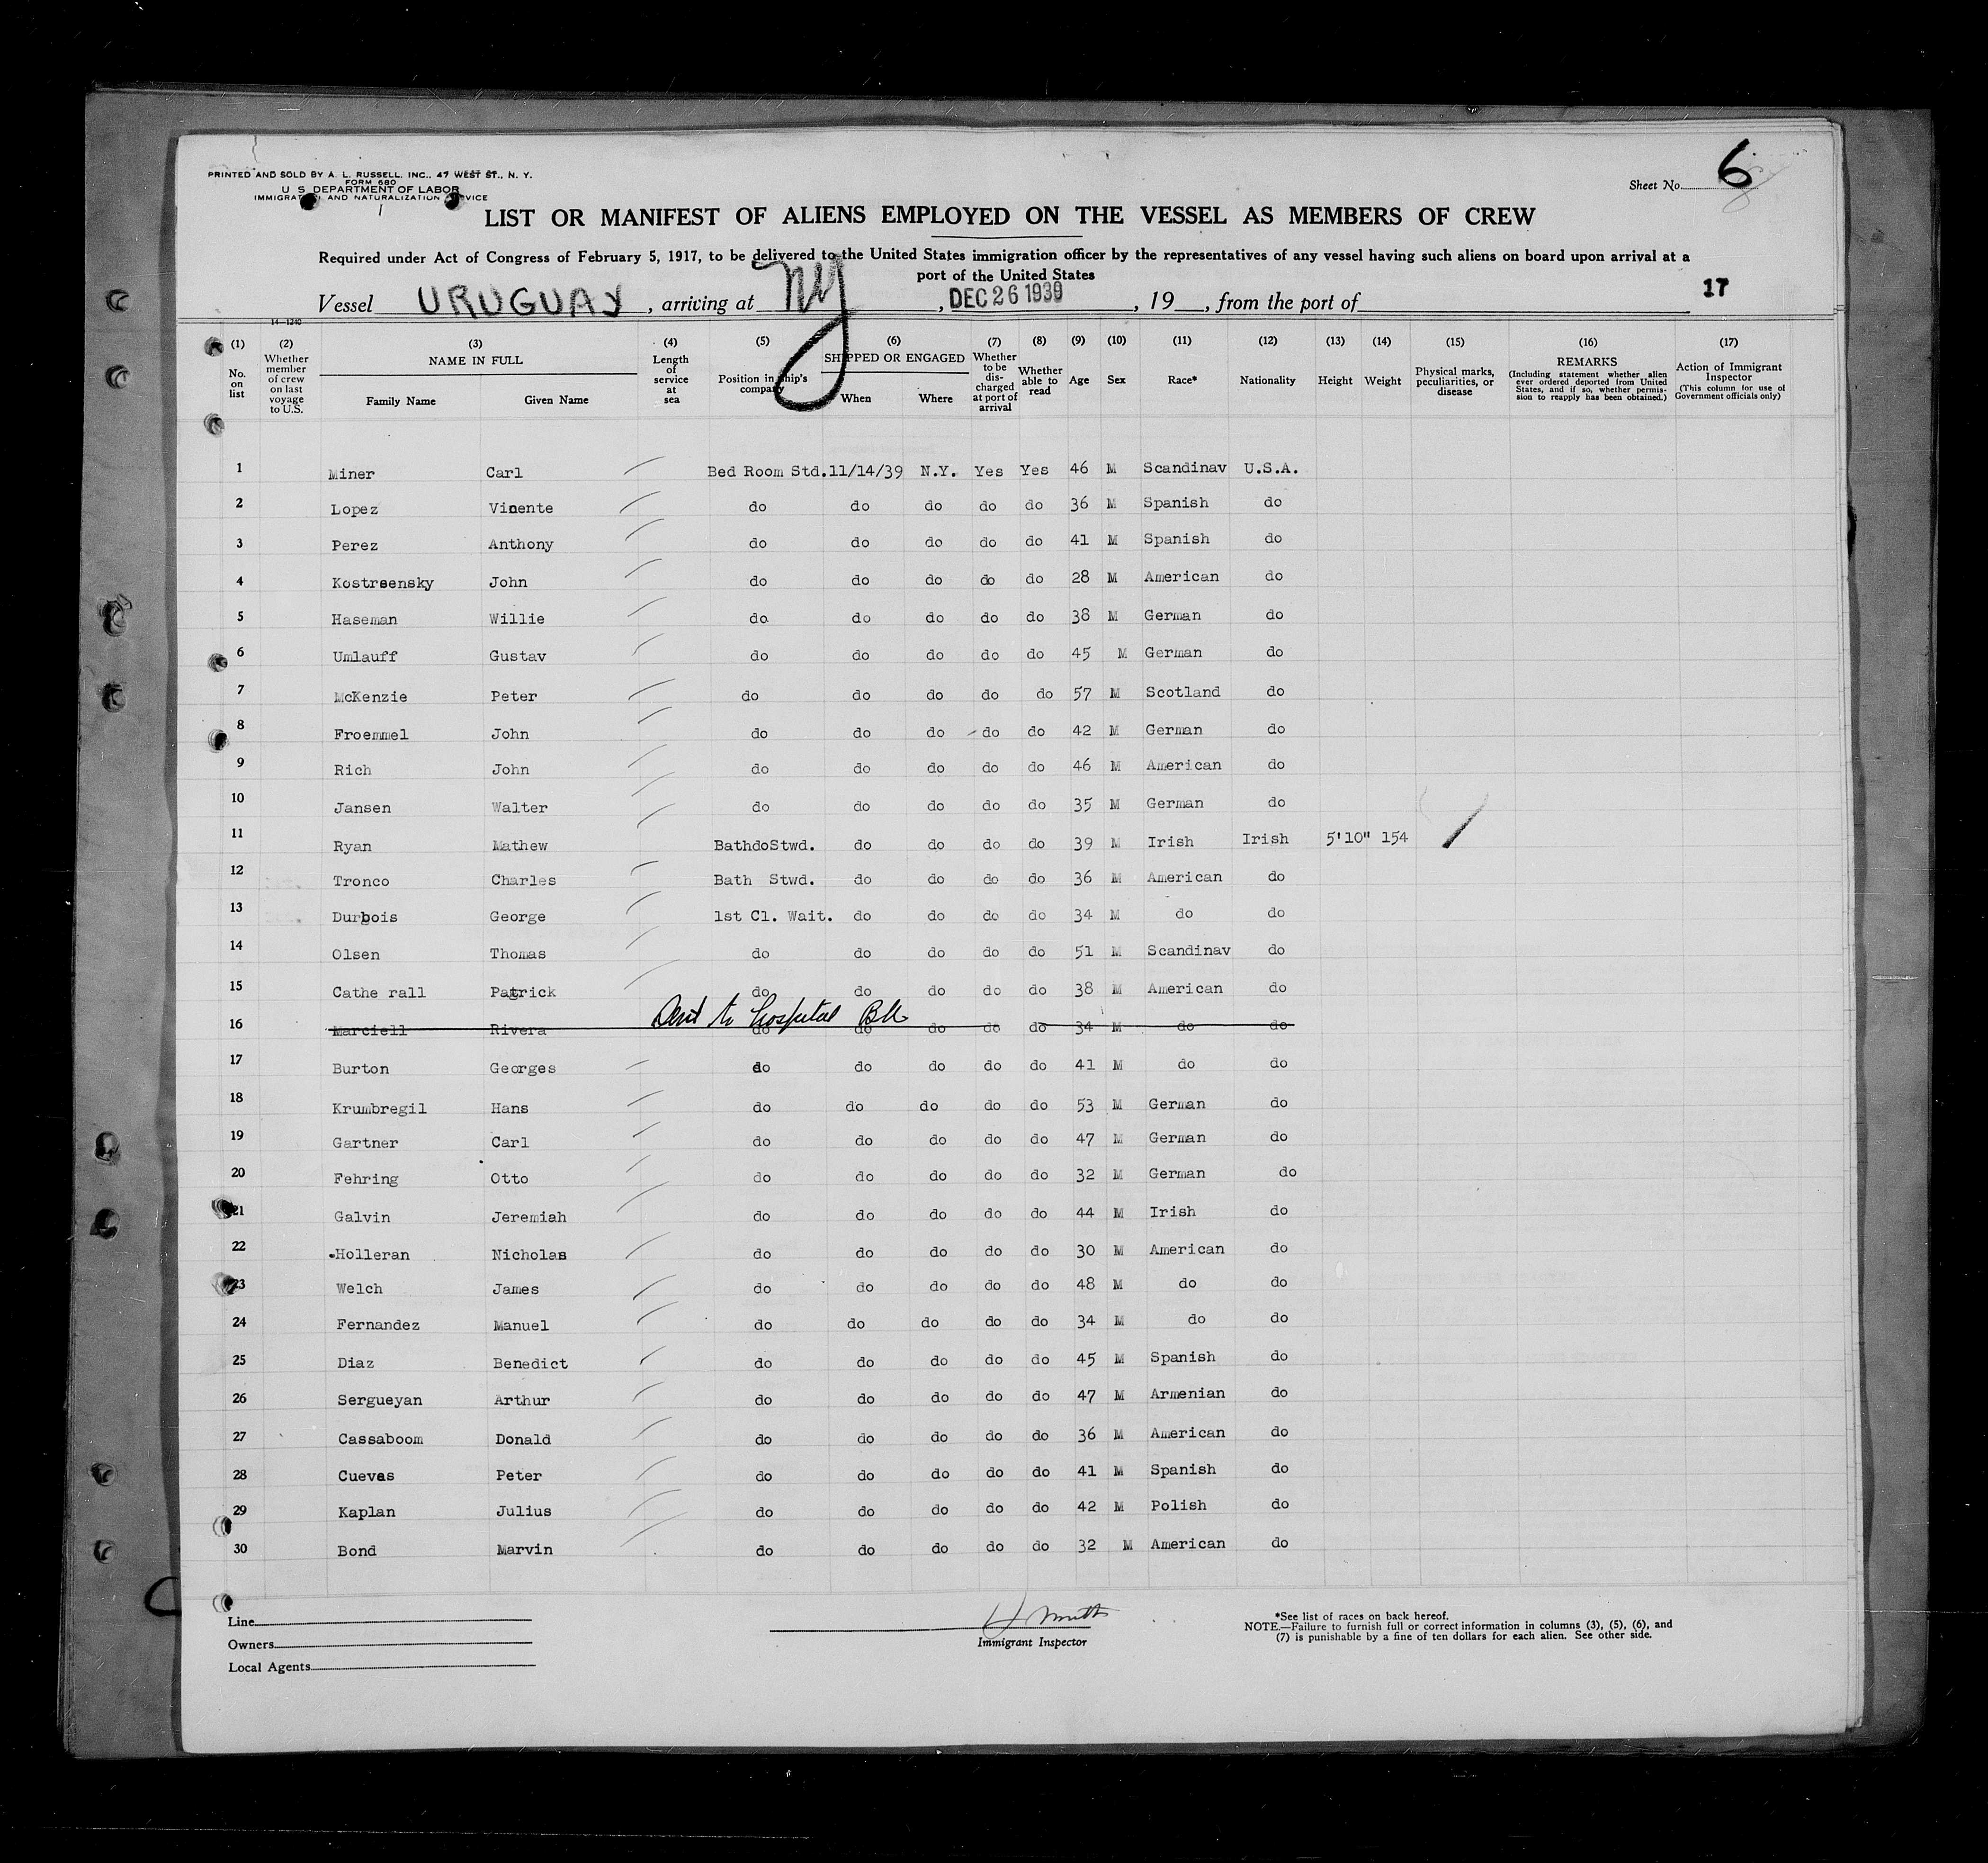 PRINTED AND SOLD BY A. L. RUSSELL. INC., 47 WEST ST., N. Y.
FORM 680
U S DEPARTMENT OF LABOR
IMMIGRAT AND NATURALIZATION VICE
Sheet No. 6
LIST OR MANIFEST OF ALIENS EMPLOYED ON THE VESSEL AS MEMBERS OF CREW
Required under Act of Congress of February 5, 1917, to be delivered to the United States immigration officer by the representatives of any vessel having such aliens on board upon arrival at a
port of the United States
17
Vessel URUGUAY, arriving at NY, DEC 26 1939, 19, from the port of
14-1240
(1) (2) (3) (4) (5) (6) (7) (8) (9) (10) (11) (12) (13) (14) (15) (16) (17)
No. on list
Whether member of crew on last voyage to U.S.
NAME IN FULL
Family Name Given Name
Length of service at sea
Position in ship's company
SHIPPED OR ENGAGED
When Where
Whether to be dis-charged at port of arrival
Whether able to read
Age Sex Race* Nationality Height Weight
Physical marks, peculiarities, or disease
REMARKS
(Including statement whether alien ever ordered deported from United States, and if so, whether permis-sion to reapply has been obtained.)
Action of Immigrant Inspector
(This column for use of Government officials only)
1 Miner Carl Bed Room Std. 11/14/39 N.Y. Yes Yes 46 M Scandinav U.S.A.
2 Lopez Vicente do do do do do 36 M Spanish do
3 Perez Anthony do do do do do 41 M Spanish do
4 Kostrsensky John do do do do do 28 M American do
5 Haseman Willie do do do do do 38 M German do
6 Umlauff Gustav do do do do do 45 M German do
7 McKenzie Peter do do do do do 57 M Scotland do
8 Froemmel John do do do do do 42 M German do
9 Rich John do do do do do 46 M American do
10 Jansen Walter do do do do do 35 M German do
11 Ryan Mathew BathdoStwd. do do do do 39 M Irish Irish 5'10" 154
12 Tronco Charles Bath Stwd. do do do do 36 M American do
13 Durbois George 1st Cl. Wait. do do do do 34 M do do
14 Olsen Thomas do do do do do 51 M Scandinav do
15 Cathe rall Patrick do do do do do 38 M American do
Sent to hospital BA
16 Marciell Rivera do do do do do 34 M do do
17 Burton Georges do do do do do 41 M do do
18 Krumbregil Hans do do do do do 53 M German do
19 Gartner Carl do do do do do 47 M German do
20 Fehring Otto do do do do do 32 M German do
21 Galvin Jeremiah do do do do do 44 M Irish do
22 Holleran Nicholas do do do do do 30 M American do
23 Welch James do do do do do 48 M do do
24 Fernandez Manuel do do do do do 34 M do do
25 Diaz Benedict do do do do do 45 M Spanish do
26 Sergueyan Arthur do do do do do 47 M Armenian do
27 Cassaboom Donald do do do do do 36 M American do
28 Cuevas Peter do do do do do 41 M Spanish do
29 Kaplan Julius do do do do do 42 M Polish do
30 Bond Marvin do do do do do 32 M American do
Line
Owners
Local Agents
Immigrant Inspector
*See list of races on back hereof.
NOTE.—Failure to furnish full or correct information in columns (3), (5), (6), and
(7) is punishable by a fine of ten dollars for each alien. See other side.